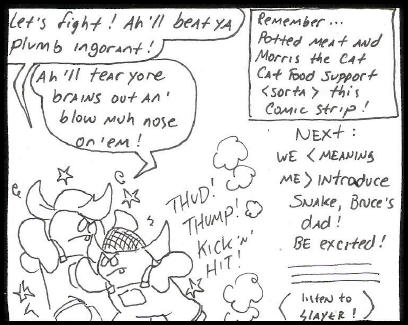 Let's fight! Ah'll beat ya
plumb ingorant!
Ah'll tear yore
brains out an'
blow muh nose
on'em!
THUD!
THUMP!
KICK 'N'
HIT!
Remember...
Potted Meat and
Morris the Cat
Cat Food Support
<sorta> this
Comic Strip!
NEXT:
WE <MEANING
ME> INTRODUCE
SNAKE, BRUCE'S
DAD!
BE EXCITED!
<listen to
SLAYER!>